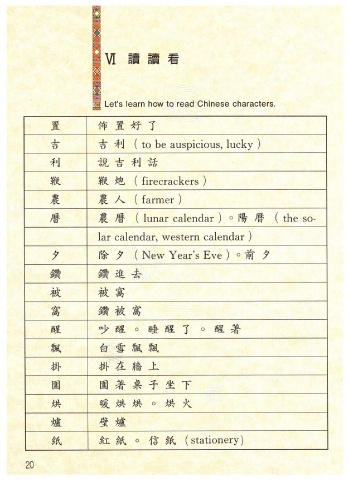 Ⅵ 讀讀看
Let's learn how to read Chinese characters.
置 佈置好了
吉 吉利 (to be auspicious, lucky)
利 說吉利話
鞭 鞭炮 (firecrackers)
農 農人 (farmer)
曆 農曆 (lunar calendar)。陽曆 (the so-
lar calendar, western calendar)
夕 除夕 (New Year's Eve)。前夕
鑽 鑽進去
被 被窩
窩 鑽被窩
醒 吵醒。睡醒了。醒著
飄 白雪飄飄
掛 掛在牆上
圍 圍著桌子坐下
烘 暖烘烘。烘火
爐 壁爐
紙 紅紙。信紙 (stationery)
20